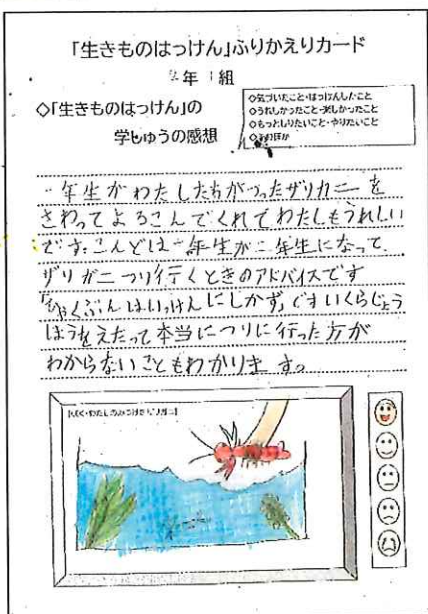 「生きものはっけん」ふりかえりカード
年 組
◇「生きものはっけん」の
学しゅうの感想
◇気づいたこと・はっけんしたこと
◇うれしかったこと・楽しかったこと
◇もっとしりたいこと・やりたいこと
◇そのほか
一年生がわたしたちがつったザリガニーを
さわってよろこんでくれてわたしもうれしい
です。こんどは一年生が二年生になって
ザリガニつり行くときのアドバイスです
「ひゃくぶんはいっけんにしかず」ですいくらじょう
ほうをえたって本当につりに行った方が
わからないこともわかります。